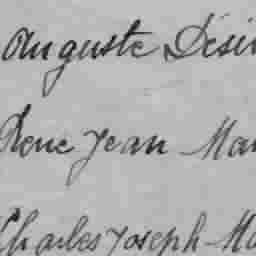 Auguste Dési
Rene Jean Ma
Charles Joseph Ma